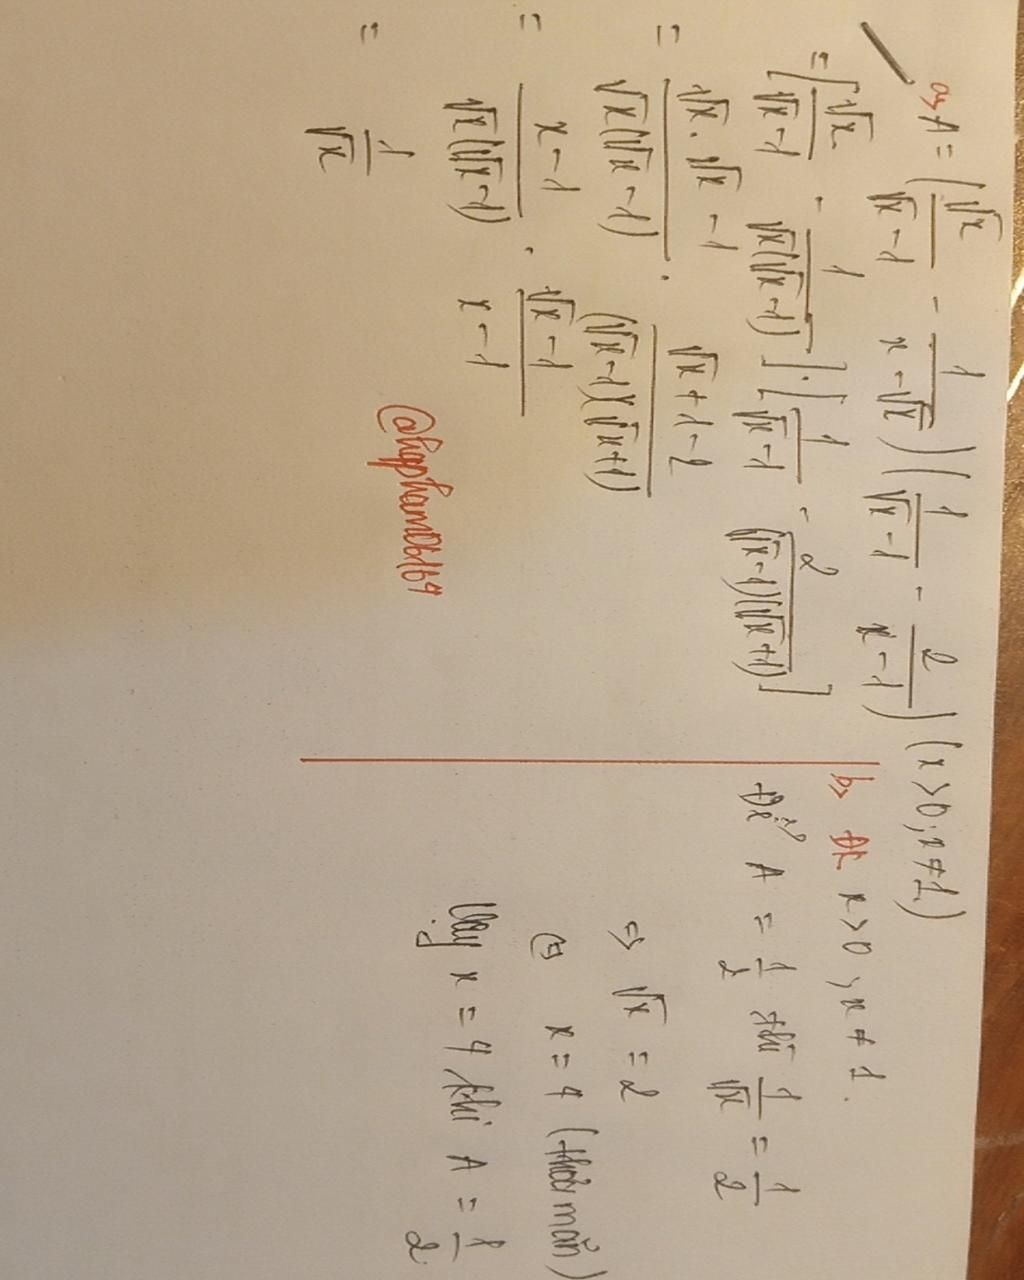 a, A = (√x/(√x-1) - 1/(x-√x)) (1/(√x-1) - 2/(x-1)) (x > 0; x ≠ 1)
= [√x/(√x-1) - 1/(√x(√x-1))] . [1/(√x-1) - 2/((√x-1)(√x+1))]
= (√x.√x - 1)/(√x(√x-1)) . (√x+1-2)/((√x-1)(√x+1))
= (x-1)/(√x(√x-1)) . (√x-1)/(x-1)
= 1/√x
@hqpham06164
b, Đk x > 0, x ≠ 1.
Để A = 1/2 thì 1/√x = 1/2
⇒ √x = 2
⇔ x = 4 (thỏa mãn)
Vậy x = 4 khi A = 1/2